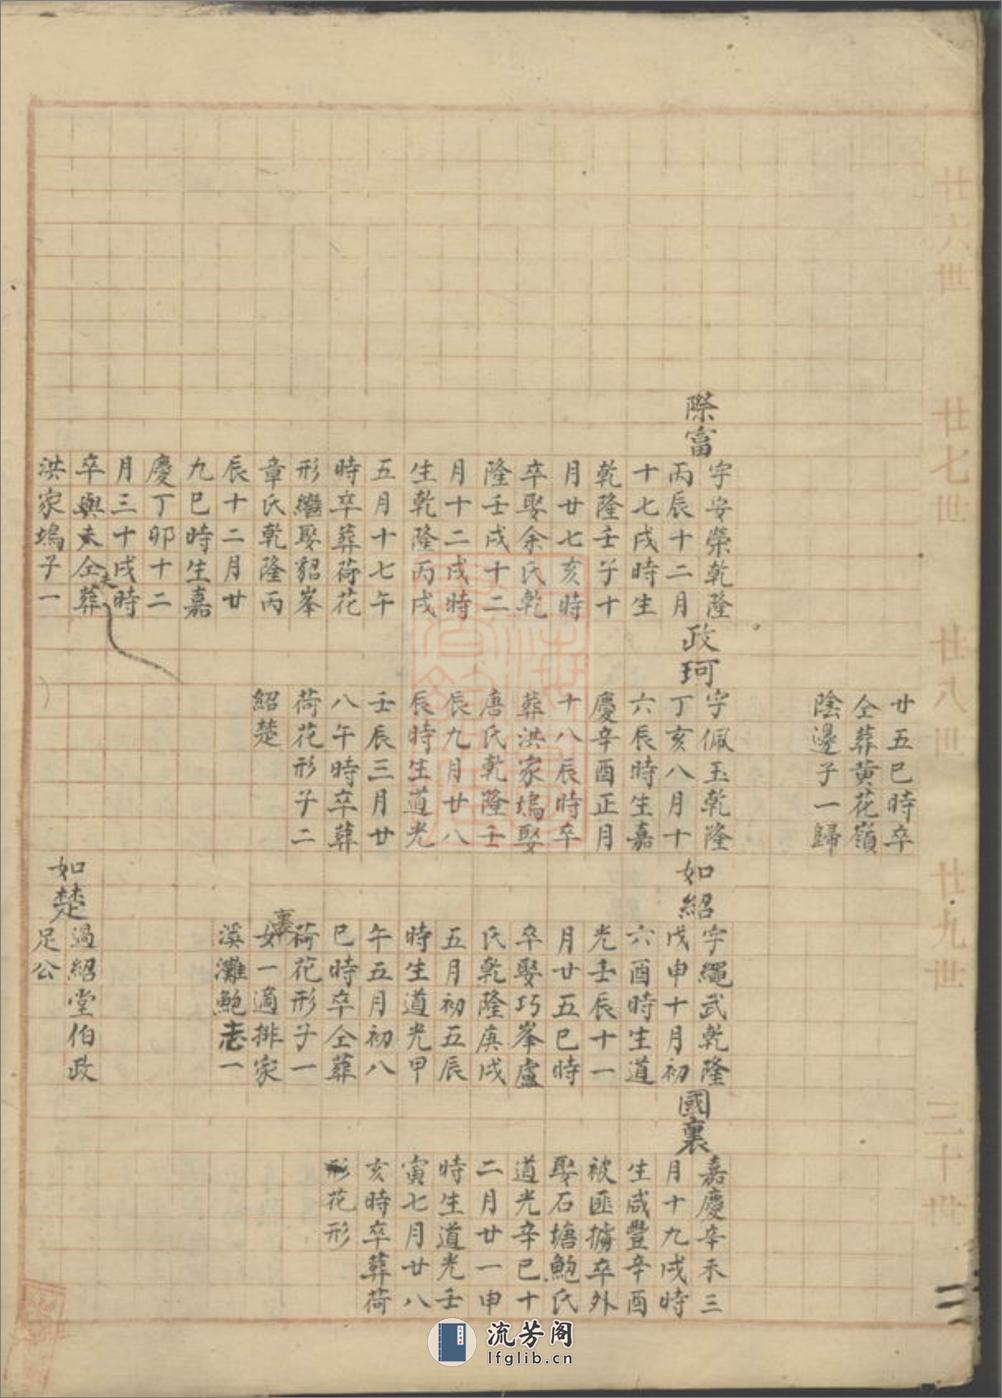 廿六世
廿七世
廿八世
廿九世
三十世
廿五巳時卒
仝葬黄花嶺
陰邊子一歸
際富
字安榮乾隆
丙辰十二月
十七戌時生
乾隆壬子十
月廿七亥時
卒娶余氏乾
隆壬戌十二
月十二戌時
生乾隆丙戌
五月十七午
時卒葬荷花
形繼娶貂峯
章氏乾隆丙
辰十二月廿
九巳時生嘉
慶丁卯十二
月三十戌時
卒與夫仝葬
洪家塢子一
政珂
字佩玉乾隆
丁亥八月十
六辰時生嘉
慶辛酉正月
十八辰時卒
葬洪家塢娶
唐氏乾隆壬
辰九月廿八
辰時生道光
壬辰三月廿
八午時卒葬
荷花形子二
紹楚
如紹
字繩武乾隆
戊申十月初
六酉時生道
光壬辰十一
月廿五巳時
卒娶巧峯盧
氏乾隆庚戌
五月初五辰
時生道光甲
午五月初八
巳時卒仝葬
荷花形子一
裏
女一適排家
溪灘鮑志一
如楚
過紹堂伯政
足公
國裏
嘉慶辛未三
月十九戌時
生咸豐辛酉
被匪擄卒外
娶石塘鮑氏
道光辛巳十
二月廿一申
時生道光壬
寅七月廿八
亥時卒葬荷
形花形
流芳阁
lfglib.cn